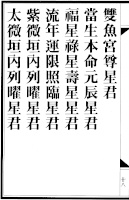 雙魚宮尊星君
當生本命元辰星君
福星祿星壽星星君
流年運限照臨星君
紫微垣內列曜星君
太微垣內列曜星君